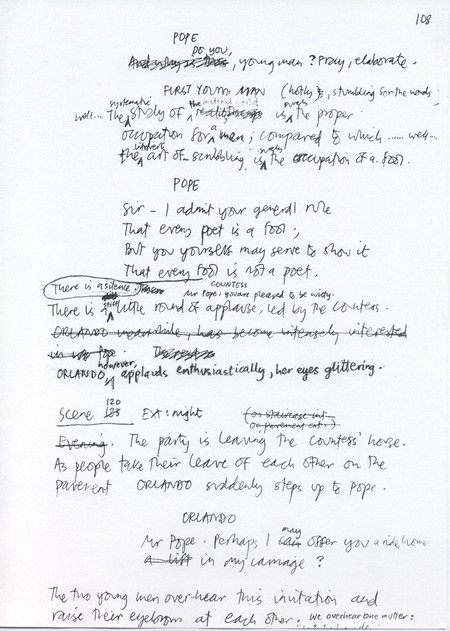 108
POPE
Do you,
And why is this, young man? Pray, elaborate.
FIRST YOUNG MAN (hotly, stumbling for the words
systematic the material world surely
well... The study of is the proper
occupation for a man; compared to which ...... well...
the art of scribbling is surely the occupation of a fool.
POPE
Sir - I admit your general rule
That every poet is a fool;
But you yourself may serve to show it
That every fool is not a poet.
COUNTESS
There is a silence. Then
Mr Pope. you are pleased to be witty.
There is a stiff little round of applause, led by the Countess.
ORLANDO meanwhile, has become intensely interested
in Pope.
however,
ORLANDO, applauds enthusiastically, her eyes glittering.
120
Scene 123 EXT: night (or staircase int.
or pavement ext.)
Evening. The party is leaving the Countess' house.
As people take their leave of each other on the
pavement ORLANDO suddenly steps up to Pope.
ORLANDO
may
Mr Pope. Perhaps I can offer you a ride home
a lift in my carriage?
The two young men over-hear this invitation and
raise their eyebrows at each other. We overhear one mutter: